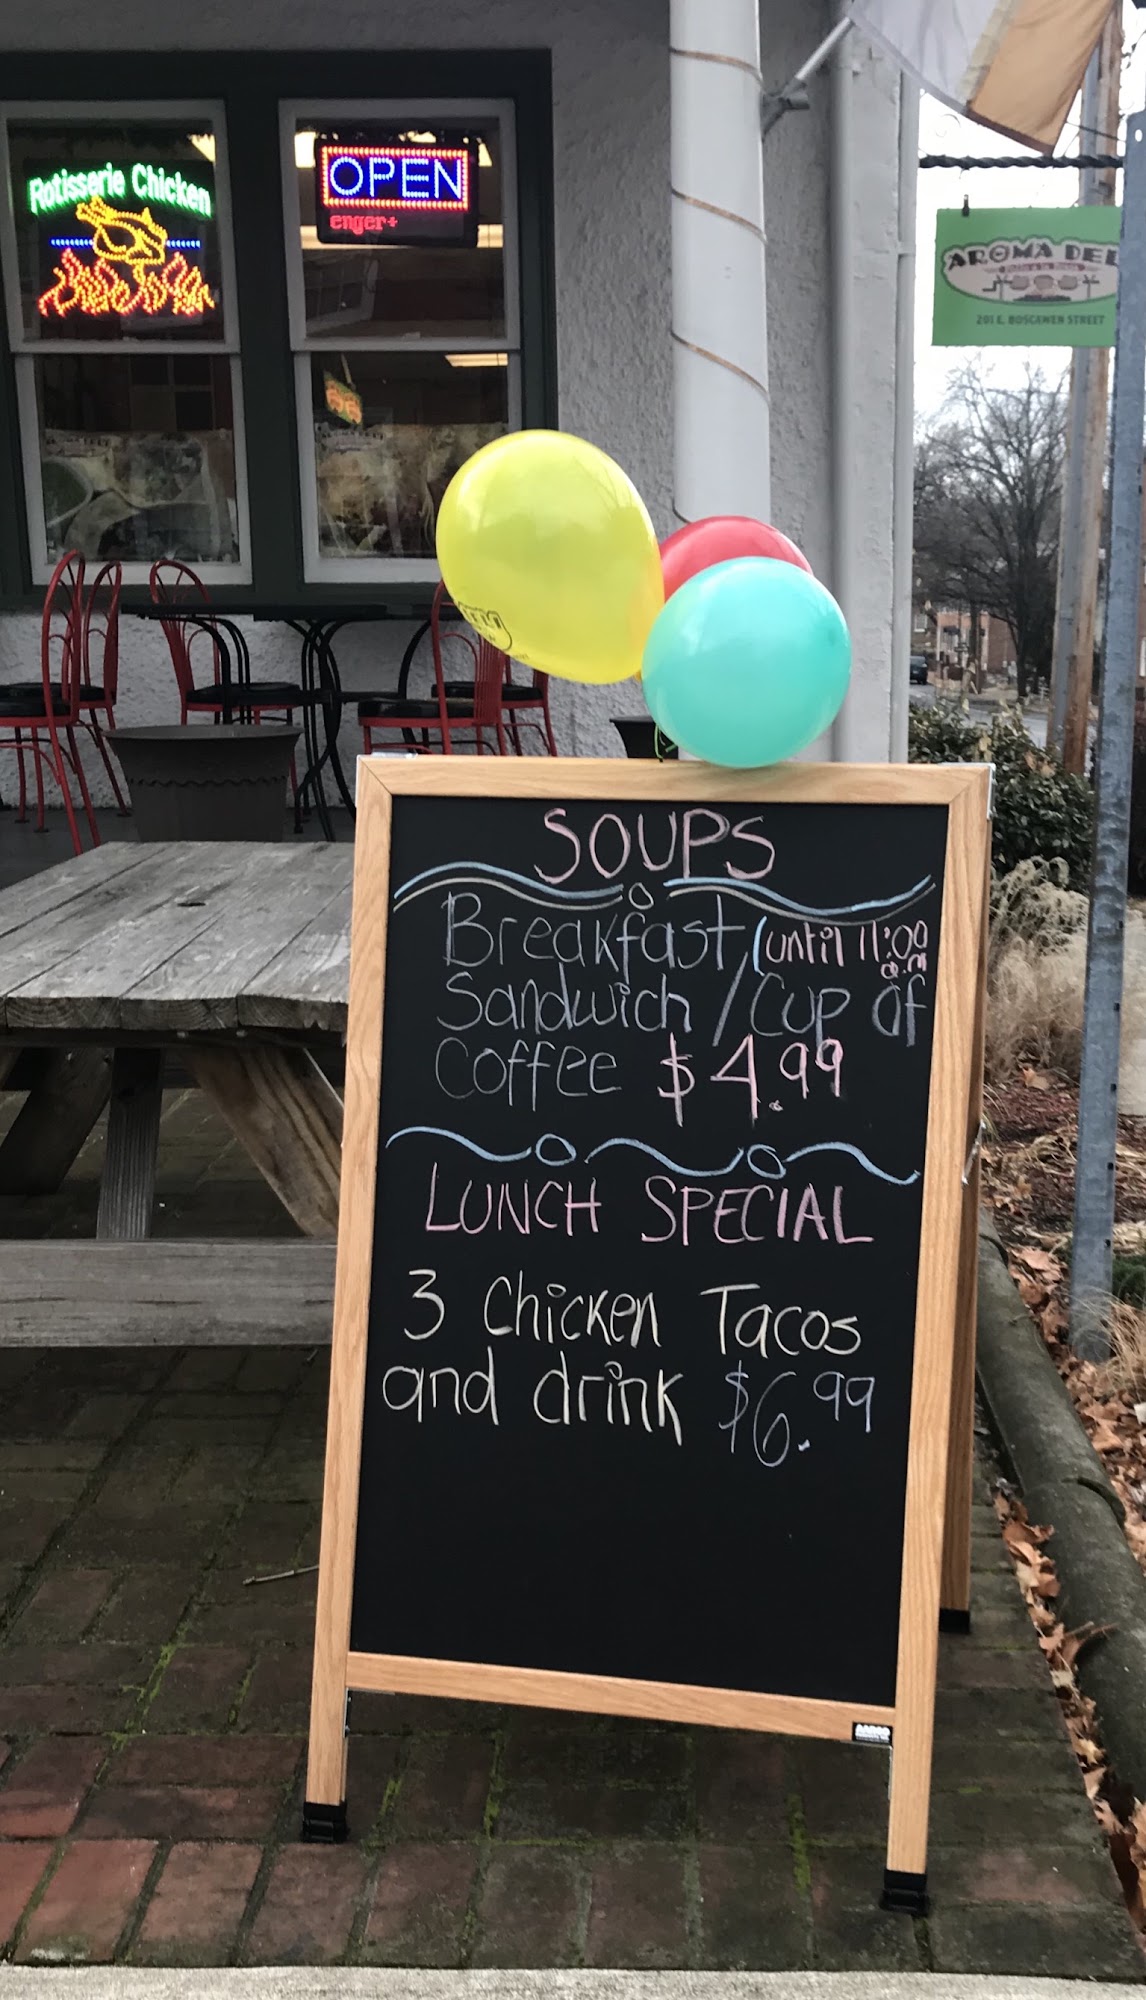 Rotisserie Chicken
OPEN
enger+
AROMA DEL
201 E. BOSCAWEN STREET
SOUPS
Breakfast (until 11:00 a.m
Sandwich / Cup of
Coffee $4.99
LUNCH SPECIAL
3 Chicken Tacos
and drink $6.99